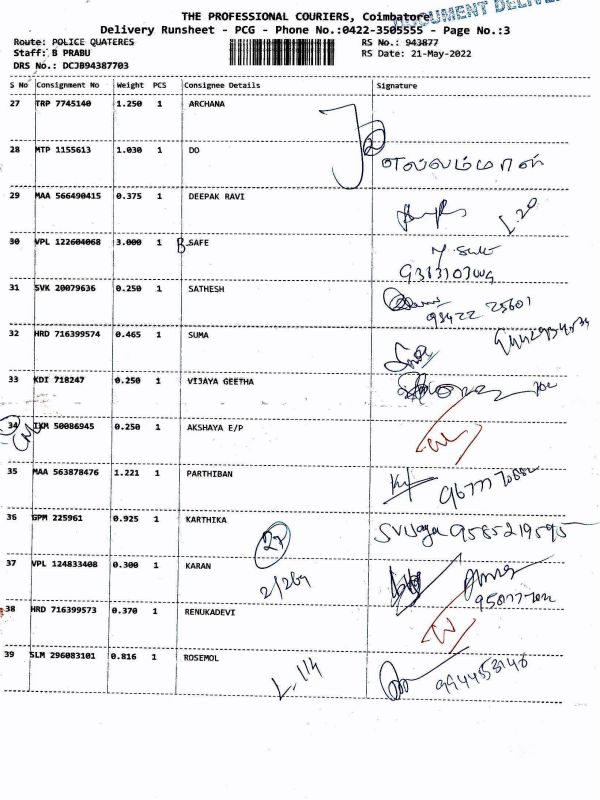 THE PROFESSIONAL COURIERS, Coimbatore
DOCUMENT DELIVE
Delivery Runsheet - PCG - Phone No.:0422-3505555 - Page No.:3
Route: POLICE QUATERES RS No.: 943877
Staff: B PRABU RS Date: 21-May-2022
DRS No.: DCJB94387703
S No Consignment No Weight PCS Consignee Details Signature
27 TRP 7745140 1.250 1 ARCHANA
28 MTP 1155613 1.030 1 DO
29 MAA 566490415 0.375 1 DEEPAK RAVI
L.20
30 VPL 122604068 3.000 1 B SAFE
31 SVK 20079636 0.250 1 SATHESH
98422 25601
32 HRD 716399574 0.465 1 SUMA
33 KDI 718247 0.250 1 VIJAYA GEETHA
34 IXM 50086945 0.250 1 AKSHAYA E/P
35 MAA 563878476 1.221 1 PARTHIBAN
36 GPM 225961 0.925 1 KARTHIKA
SVijaya 9585219595
27
37 VPL 124833408 0.300 1 KARAN
2/269
38 HRD 716399573 0.370 1 RENUKADEVI
39 SLM 296083101 0.816 1 ROSEMOL
L.114
9944553146